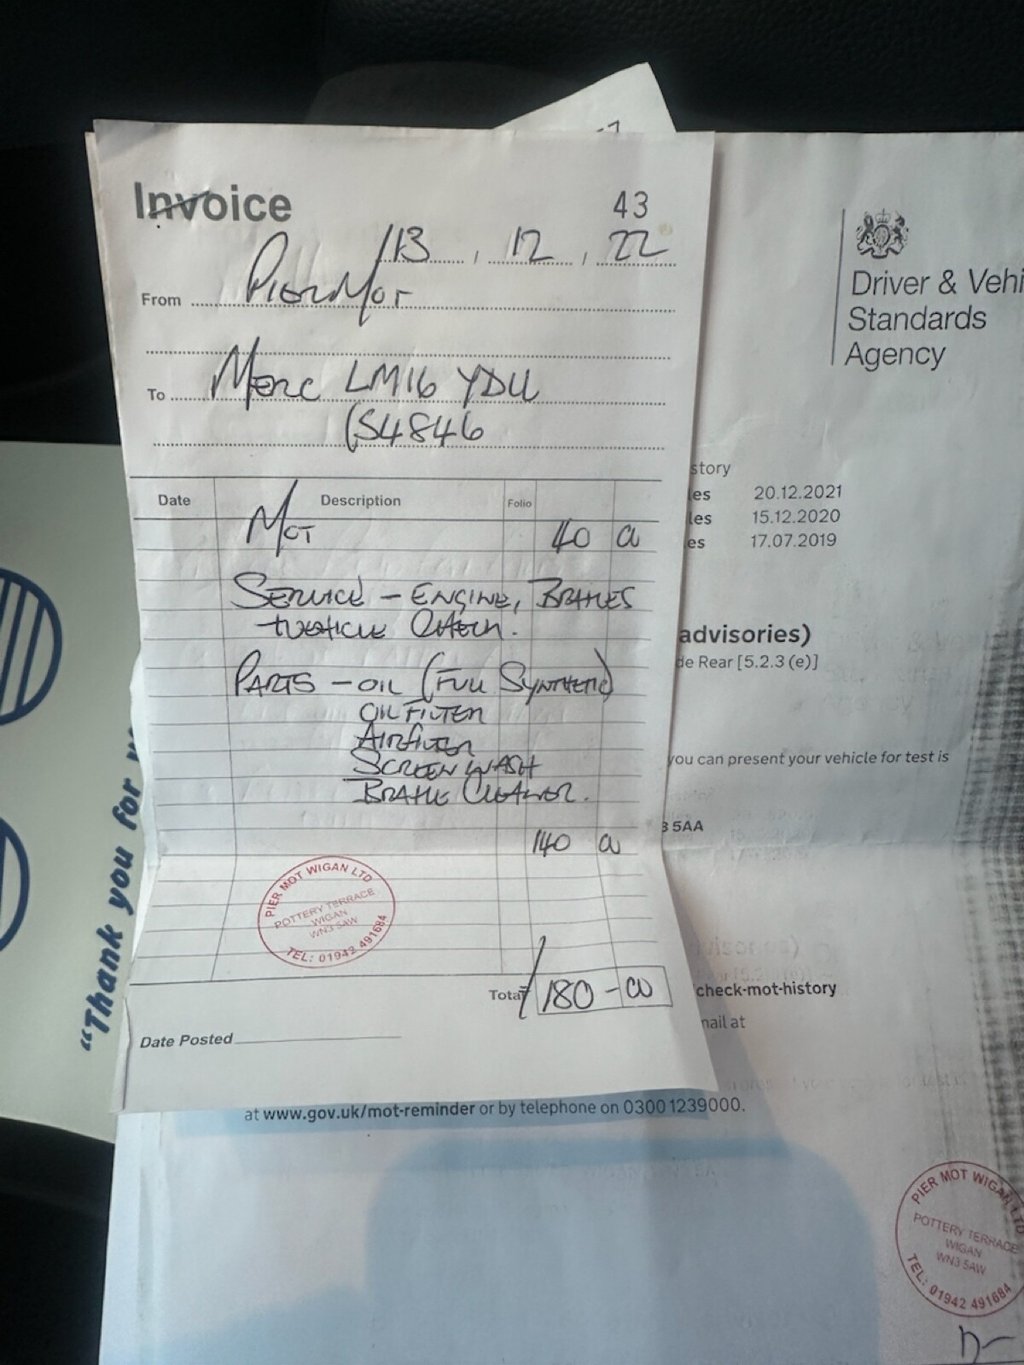 Invoice
43
13 , 12 , 22
From PIER MOT
To MERC LM16 YDU
(54846
Date Description Folio
MOT 40 00
SERVICE - ENGINE, BRAKES
+ VEHICLE CHECK.
PARTS - OIL (FULL SYNTHETIC)
OIL FILTER
AIR FILTER
SCREEN WASH
BRAKE CLEANER.
140 00
PIER MOT WIGAN LTD
POTTERY TERRACE
WIGAN
WN3 5AW
TEL: 01942 491684
Total 180 - 00
Date Posted
"Thank you for
Driver & Vehi
Standards
Agency
story
les 20.12.2021
les 15.12.2020
es 17.07.2019
advisories)
de Rear [5.2.3 (e)]
you can present your vehicle for test is
5AA
check-mot-history
nail at
at www.gov.uk/mot-reminder or by telephone on 0300 1239000.
PIER MOT WIGAN LTD
POTTERY TERRACE
WIGAN
WN3 5AW
TEL: 01942 491684